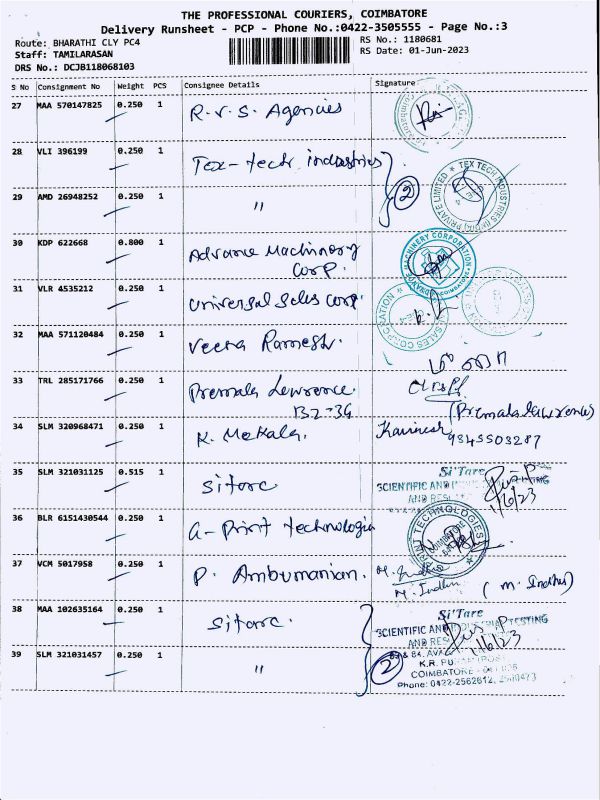 THE PROFESSIONAL COURIERS, COIMBATORE
Delivery Runsheet - PCP - Phone No.:0422-3505555 - Page No.:3
Route: BHARATHI CLY PC4
RS No.: 1180681
Staff: TAMILARASAN
RS Date: 01-Jun-2023
DRS No.: DCJB118068103
S No Consignment No Weight PCS Consignee Details Signature
27 MAA 570147825 0.250 1 R.V.S. Agencies
28 VLI 396199 0.250 1 Tex-tech industries
TEX TECH INDUSTRIES (INDIA) PRIVATE LIMITED
29 AMD 26948252 0.250 1 "
2
30 KDP 622668 0.800 1 Advance Machinery
Corp.
ADVANCE MACHINERY CORPORATION
COIMBATORE
31 VLR 4535212 0.250 1 Universal Sales Corp.
SALES CORPORATION
32 MAA 571120484 0.250 1 Veena Ramesh.
33 TRL 285171766 0.250 1 Premala Lawrence.
B2-3G
(Premala lawrence)
34 SLM 320968471 0.250 1 K. Mekala.
9345503287
35 SLM 321031125 0.515 1 Sitarc
Si'Tarc
SCIENTIFIC AND
1/6/23
36 BLR 6151430544 0.250 1 a-Print technologia
TECHNOLOGIES
COIMBATORE
37 VCM 5017958 0.250 1 P. Ambumanian.
M. Indhu
(M. Indhu)
38 MAA 102635164 0.250 1 Sitarc.
Si'Tarc
SCIENTIFIC AND INDUSTRIAL TESTING
AND RES
1/6/23
39 SLM 321031457 0.250 1 "
2
K.R. PU
COIMBATORE
Phone: 0422-2562612,